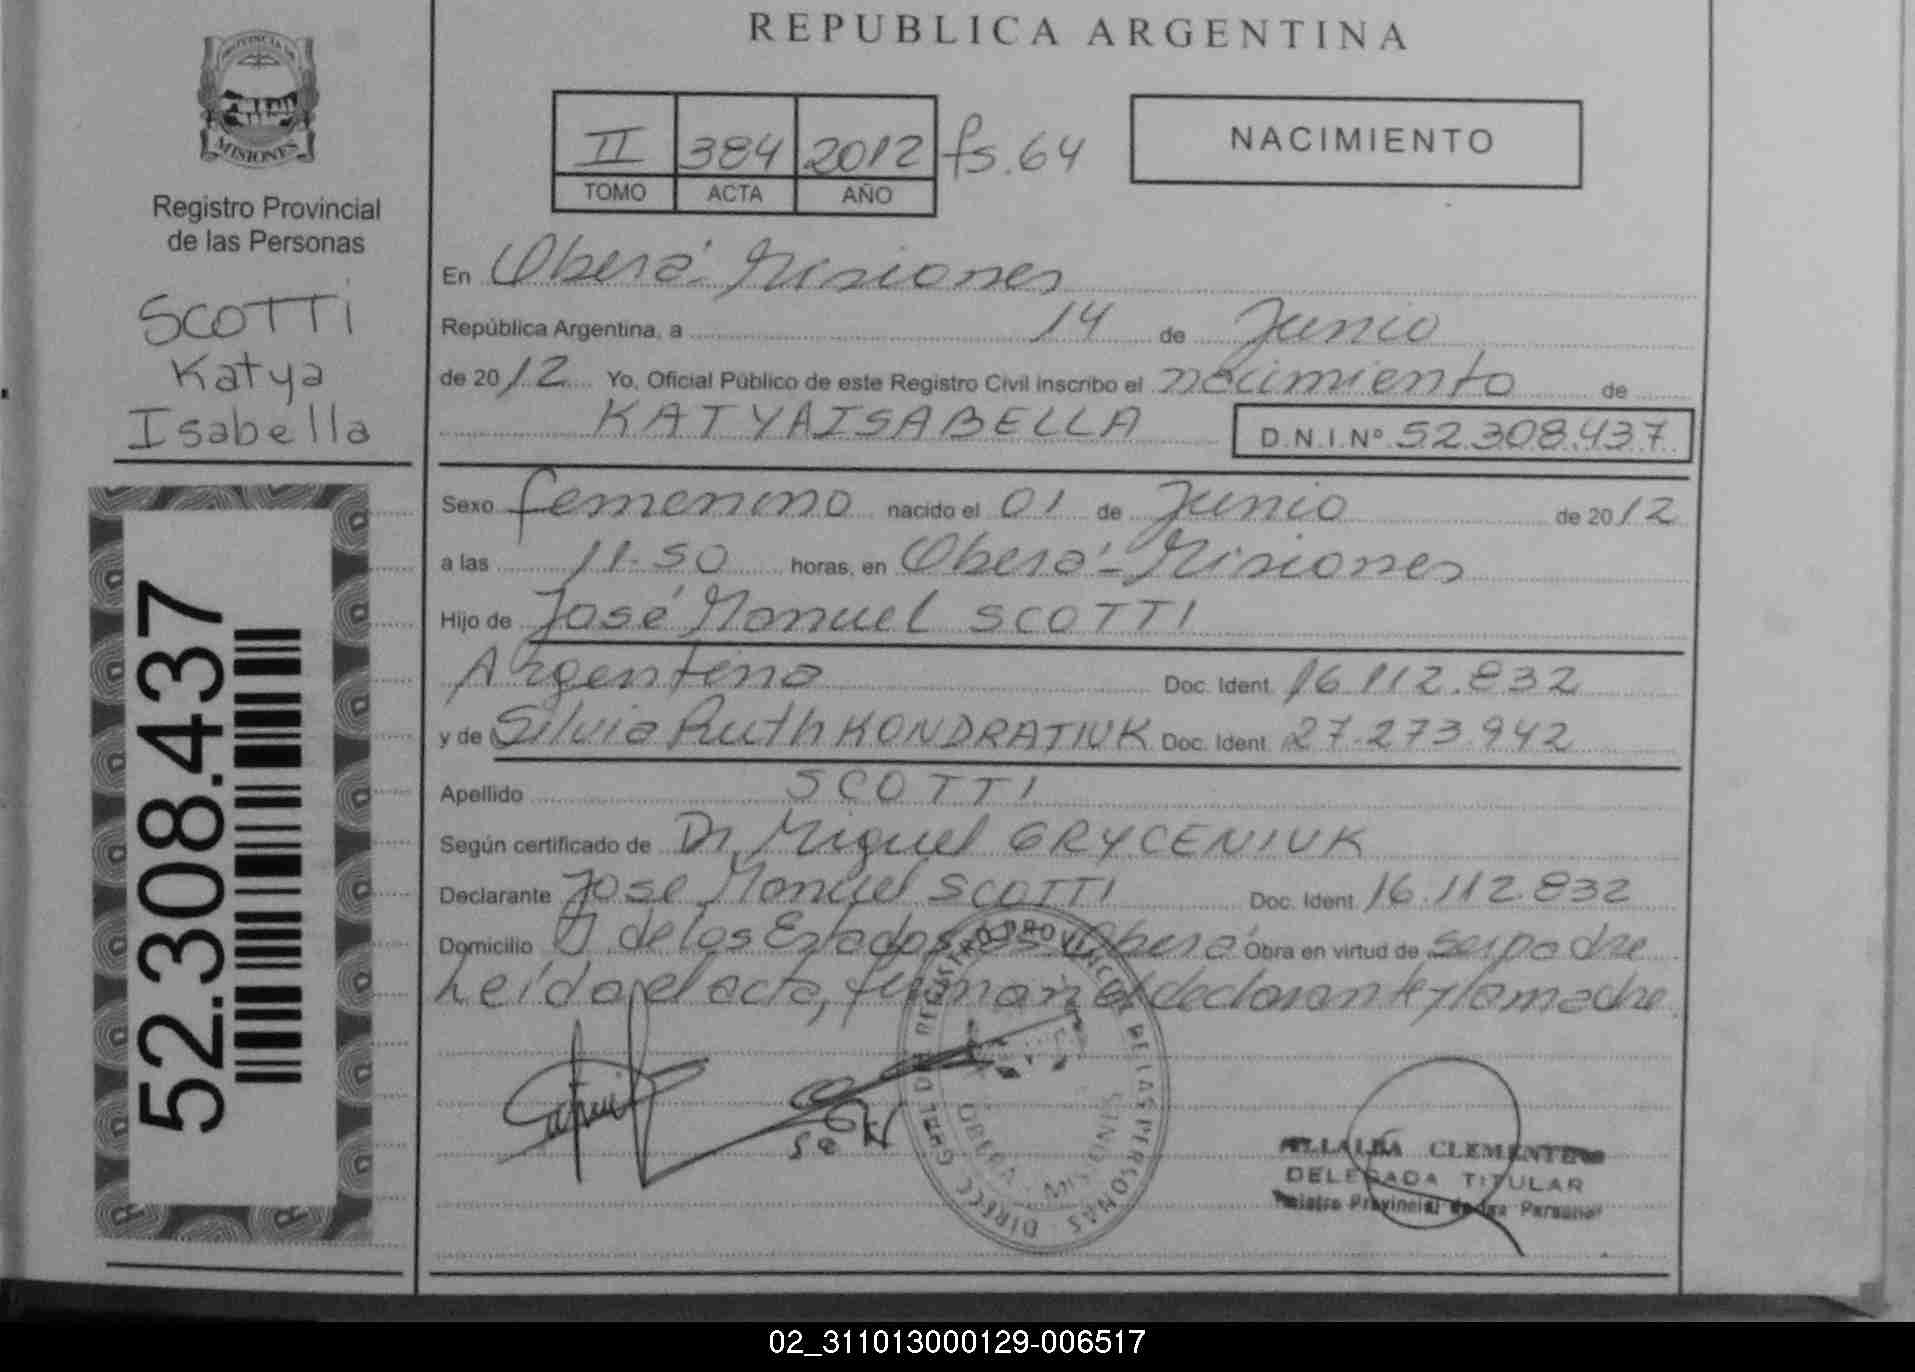 REPUBLICA ARGENTINA
PROVINCIA DE
MISIONES
Registro Provincial
de las Personas
SCOTTI
Katya
Isabella
52.308.437
II 384 2012 fs.64
TOMO ACTA AÑO
NACIMIENTO
En Oberá - Misiones
República Argentina, a 14 de Junio
de 2012 Yo, Oficial Público de este Registro Civil inscribo el nacimiento de
KATYA ISABELLA D.N.I.Nº 52.308.437
Sexo femenino nacido el 01 de Junio de 2012
a las 11.50 horas, en Oberá - Misiones
Hijo de José Manuel SCOTTI
Argentino Doc. Ident. 16.112.832
y de Silvia Ruth KONDRATIUK Doc. Ident. 27.273.942
Apellido SCOTTI
Según certificado de Dr. Miguel GRYCENIUK
Declarante José Manuel SCOTTI Doc. Ident. 16.112.832
Domicilio de los Estados Oberá Obra en virtud de ser padre
Leída el acta, firman el declarante y la madre
REGISTRO PROVINCIAL DE LAS PERSONAS
OBERA - MISIONES
CLEMENTE
DELEGADA TITULAR
Registro Provincial de las Personas
02_311013000129-006517